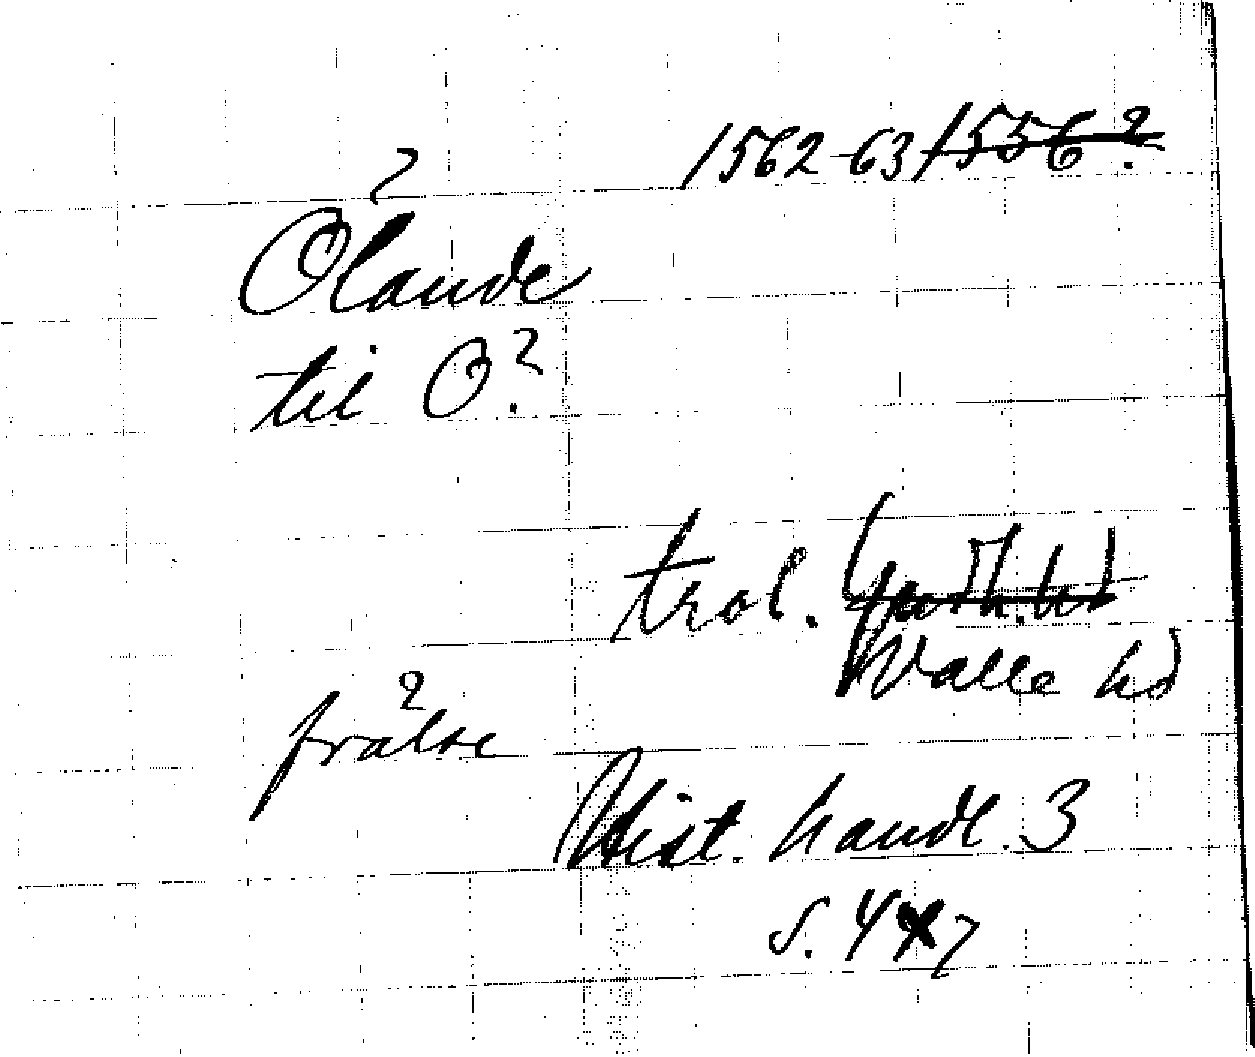 1562-63 1556?
?
Olaude
til O?
trol. Gudh. hd
Valle hd
?
frälse
Hist. handl. 3
s. 47